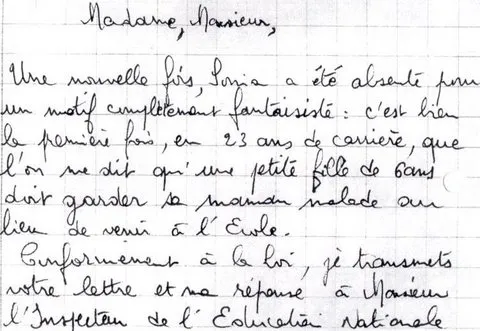 Madame, Monsieur,
Une nouvelle fois, Sonia a été absente pour
un motif complètement fantaisiste : c'est bien
la première fois, en 23 ans de carrière, que
l'on me dit qu'une petite fille de 6 ans
doit garder sa maman malade au
lieu de venir à l'Ecole.
Conformément à la loi, je transmets
votre lettre et ma réponse à Monsieur
l'Inspecteur de l'Education Nationale